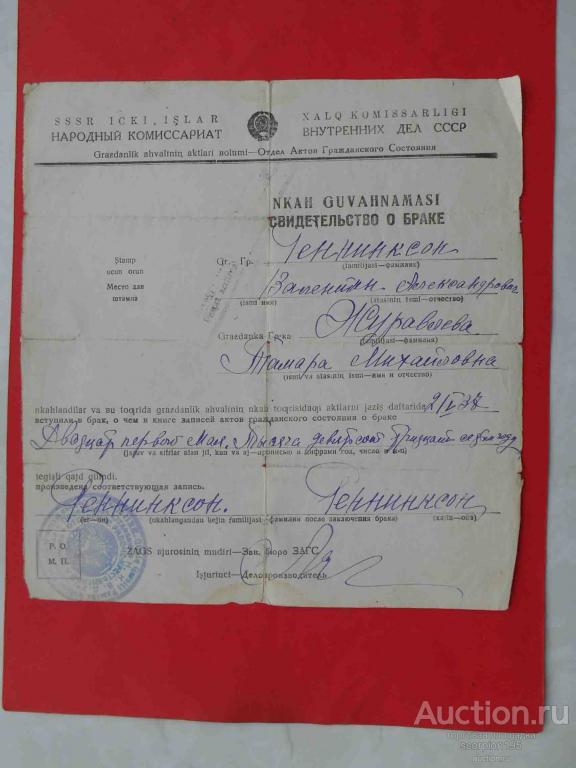 SSSR ICKI, IŞLAR XALQ KOMISSARLIGI
НАРОДНЫЙ КОМИССАРИАТ ВНУТРЕННИХ ДЕЛ СССР
Grazdanlik ahvalinin aktlari bolumi—Отдел Актов Гражданского Состояния
NKAH GUVAHNAMASI
СВИДЕТЕЛЬСТВО О БРАКЕ
Ştamp
ucun orun
Место для
штампа
Gr. Гр. Геннинксон
(familijasi—фамилия)
Валентин Александрович
(ismi имя) (atasinin ismi—отчество)
Grazdanka Гр-ка Журавлева
(familijasi—фамилия)
Тамара Михайловна
(ismi va atasinin ismi—имя и отчество)
nkahlandilar va bu toqrida grazdanlik ahvalinin nkah toqrisidaqi aktlarni jaziş daftarida 21/V 37
вступили в брак, о чем в книге записей актов гражданского состояния о браке
Двадцать первого мая Тысяча девятьсот тридцать седьмого
(jazuv va sifrlar alan jil, kun va aj—прописью и цифрами год, число и м-ц)
tegişli qajd qilindi.
произведена соответствующая запись.
Геннинксон. Геннинксон
(er—он) (nkahlangandan kejin familijasi—фамилия после заключения брака) (xatin—она)
P. O.
М. П.
ZAGS bjurosinin mudiri—Зав. бюро ЗАГС
Işjurinci—Делопроизводитель
Auction.ru
scorpion195